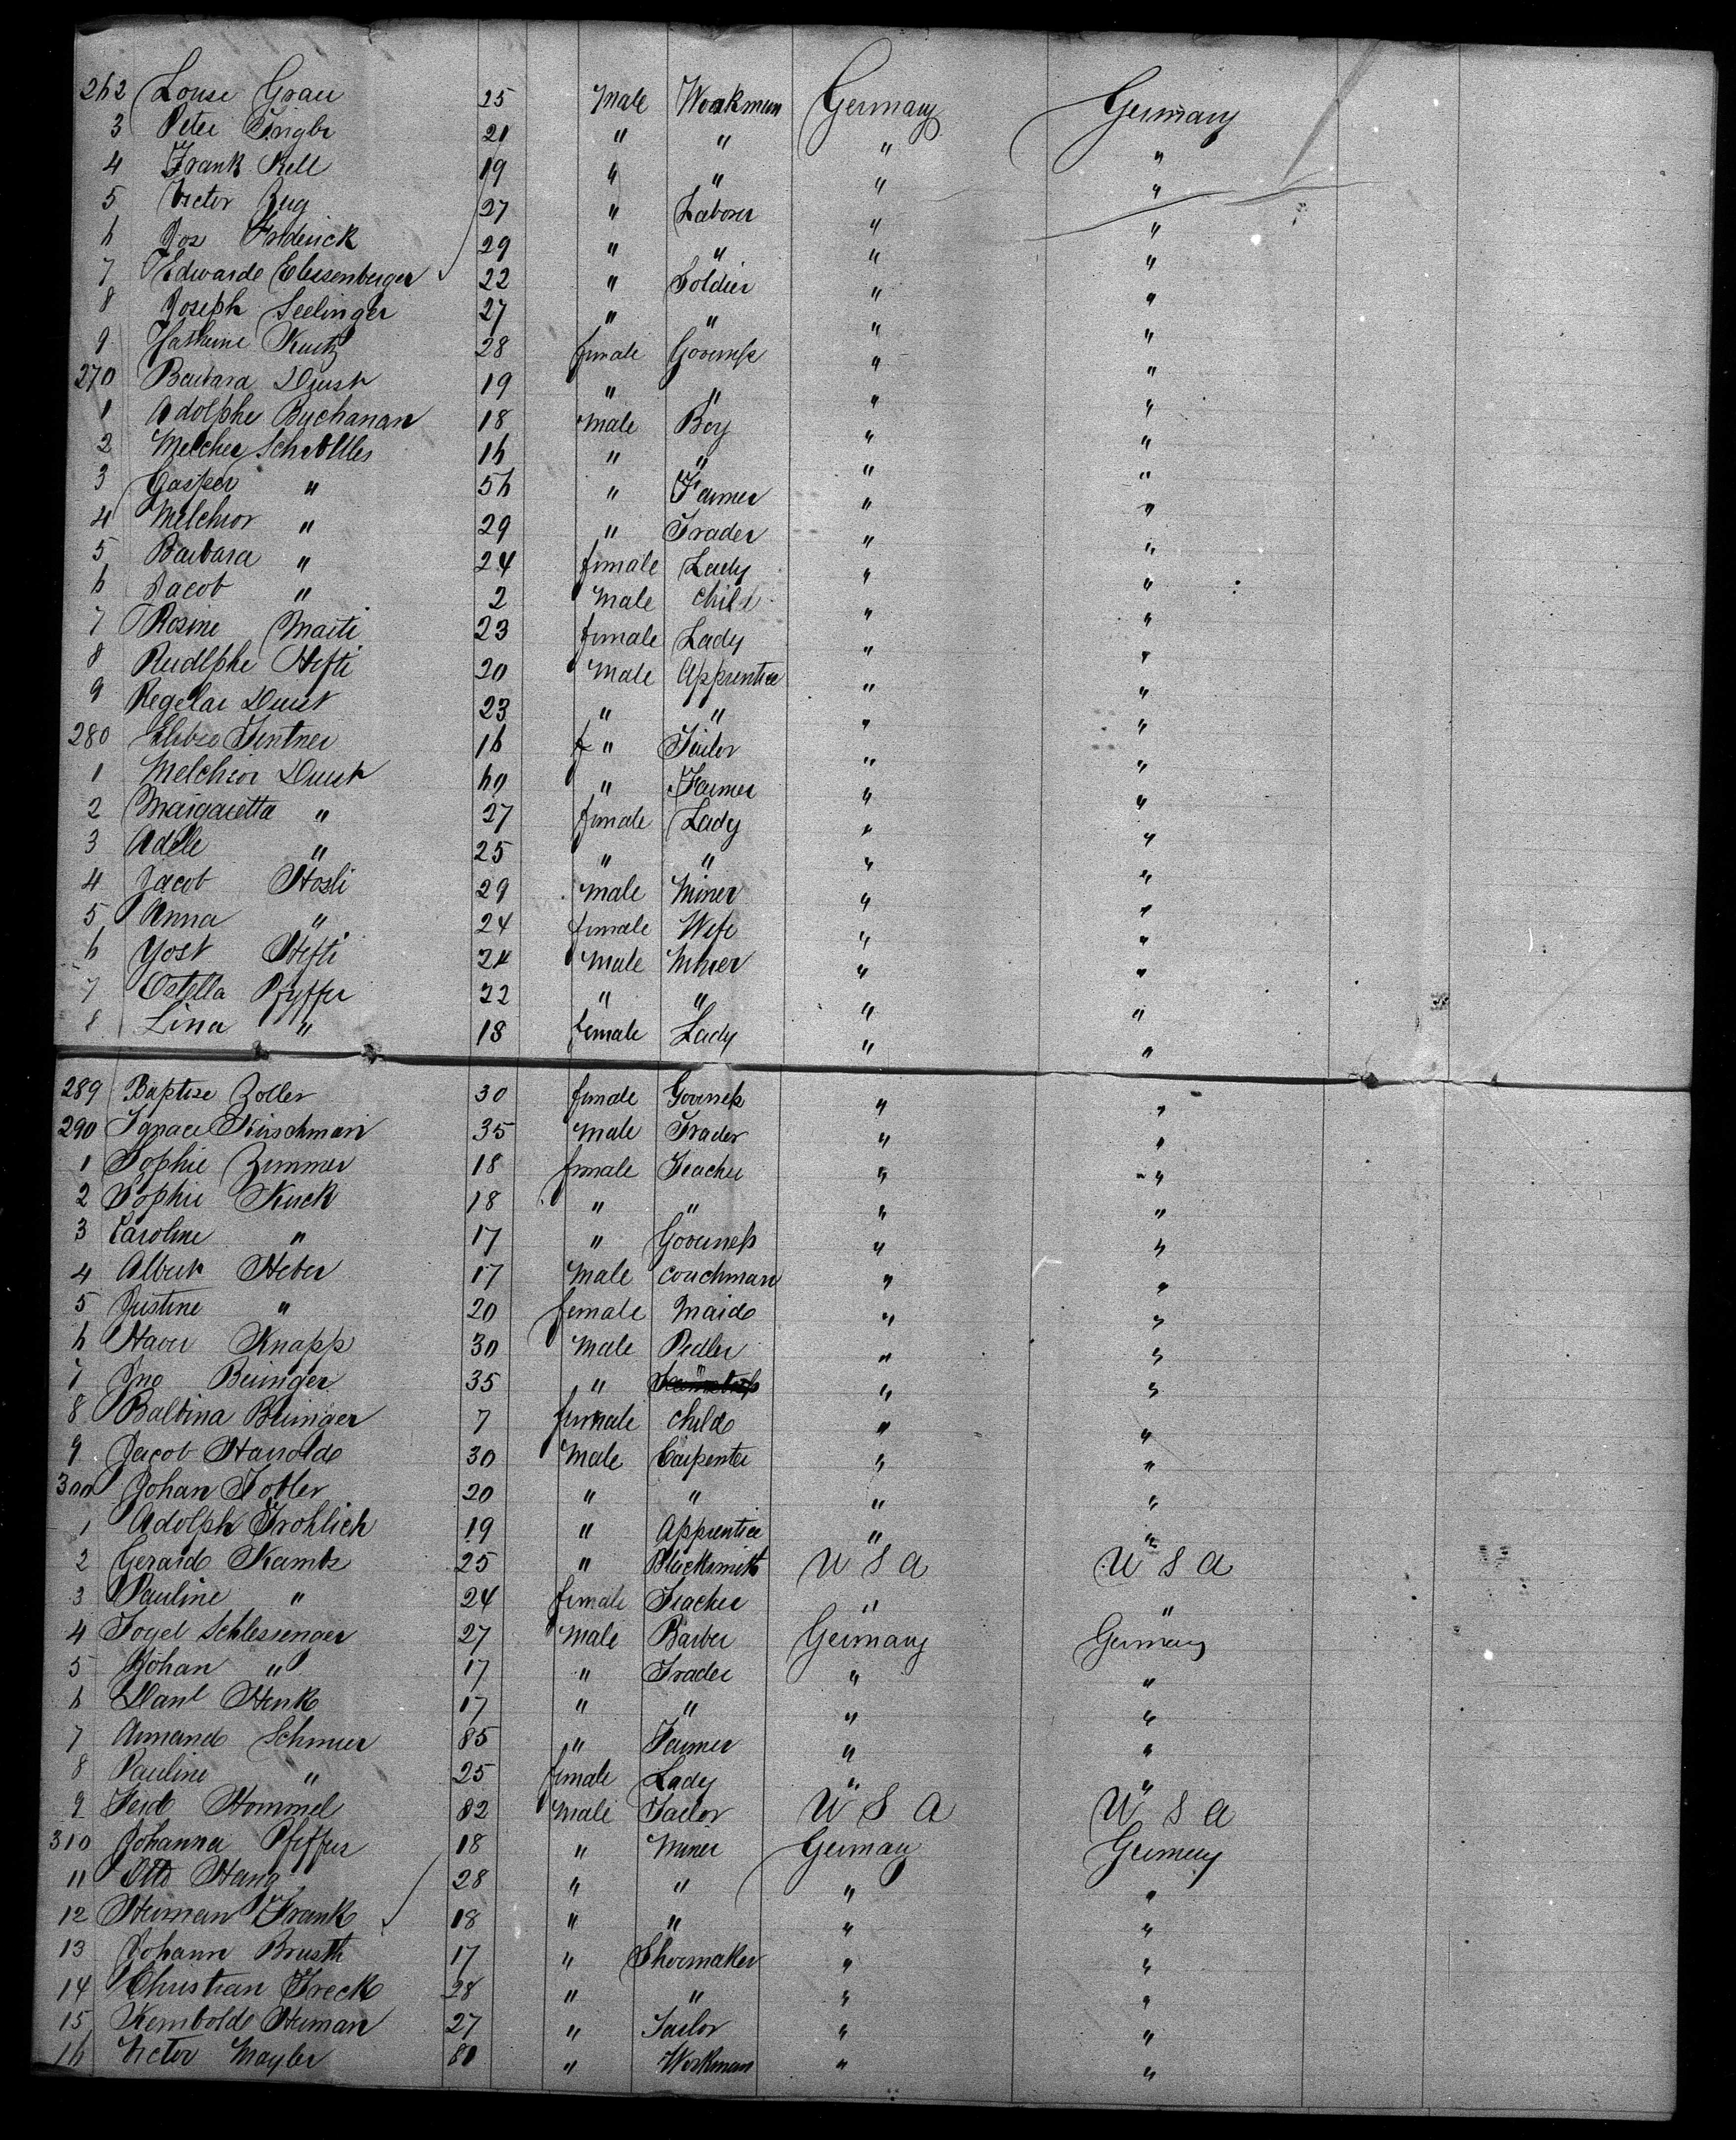 262 Louse Grau 25 Male Workman Germany Germany
3 Peter Engler 21 " " " "
4 Frank Kell 19 " " " "
5 Victor Zug 27 " Laborer " "
6 Jos Frederick 29 " " " "
7 Edward Elissenberger 22 " Soldier " "
8 Joseph Seelinger 27 " " " "
9 Katherine Kurtz 28 female Governess " "
270 Barbara Durst 19 " " " "
1 Adolphe Buchanan 18 Male Boy " "
2 Melcher Schottles 16 " " " "
3 Casper " 56 " Farmer " "
4 Melchior " 29 " Trader " "
5 Barbara " 24 female Lady " "
6 Jacob " 2 Male Child " "
7 Rosine Marti 23 female Lady " "
8 Rudlphe Hefti 20 Male Apprentice " "
9 Regelai Durst 23 " " " "
280 Tintner 16 f " Tailor " "
1 Melchior Durst 60 " Farmer " "
2 Margaretta " 27 female Lady " "
3 Adele " 25 " " " "
4 Jacob Hosli 29 Male Miner " "
5 Anna " 24 female Wife " "
6 Yost Hefti 24 Male Miner " "
7 Ostilla Pfyffer 22 " " " "
8 Lina " 18 female Lady " "
289 Baptise Zoller 30 female Governess " "
290 Ignace Kirschman 35 Male Trader " "
1 Sophie Zimmer 18 female Teacher " "
2 Sophie Kuck 18 " " " "
3 Caroline " 17 " Governess " "
4 Albert Heber 17 Male Coachman " "
5 Justine " 20 female Maid " "
6 Xaver Knapp 30 Male Pedler " "
7 Jno Beuinger 35 " " "
8 Balbina Beuinger 7 female Child " "
9 Jacob Harrold 30 Male Carpenter " "
300 Johan Tobler 20 " " " "
1 Adolph Frohlich 19 " Apprentice " "
2 Gerard Kambs 25 " Blacksmith U S A U S A
3 Pauline " 24 female Teacher " "
4 Schlessenger 27 Male Barber Germany Germany
5 Johan " 17 " Trader " "
6 Danl Henk 17 " " " "
7 Armand Schmier 35 " Farmer " "
8 Pauline " 25 female Lady " "
9 Ferd Hommel 32 Male Tailor U S A U S A
310 Johanna Pfeffer 18 " Miner Germany Germany
11 Otto Hang 28 " " " "
12 Herman Frank 18 " " " "
13 Johann Brusth 17 " Shoemaker " "
14 Christian Freck 28 " " " "
15 Rembold Herman 27 " Tailor " "
16 Victor Mayler 30 " Workman " "